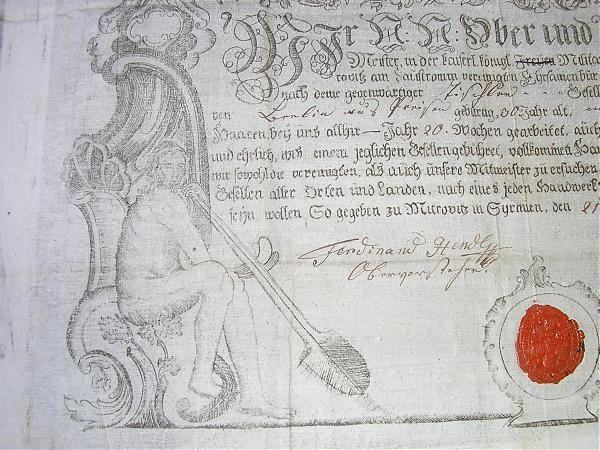 Wir N: N: Ober und
Meister, in der kaiserl. königl. Freyen Militar
rovitz am Saustromm vereinigten Ehrsamen bür
nach deme gegenwärtiger Tischler - Gesell
von Berlin aus Preisen gebürtig, 30 Jahr alt,
Haaren, bey uns allhir — Jahr 20. Wochen gearbeitet, auch
und ehrlich, wie einem jeglichen Gesellen gebühret, vollkommen
wir sowohl die vereinigten, als auch unsere Mitmeister zu ersuchen
Gesellen aller Orten und Landen, nach eines jeden Handwerk
seyn wollen So gegeben zu Mitrovitz in Syrmien, den 21
Ferdinand
Obervorsteher.